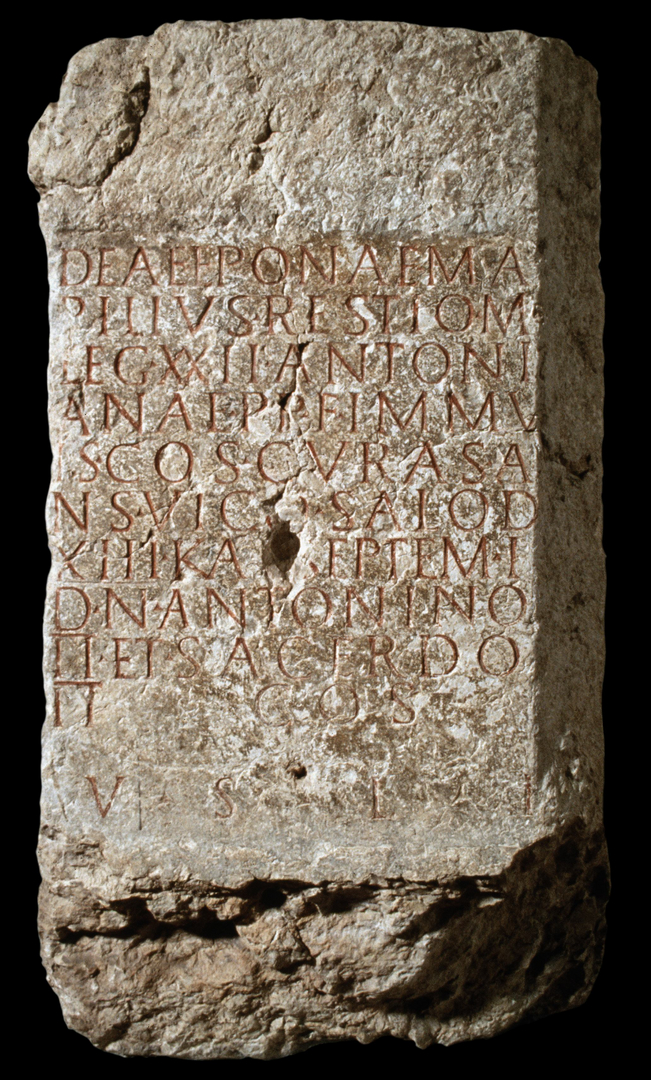 DEAE EPONAE MA
PILIVS RESTIO M
LEG XXII ANTONI
ANAE P P F IMMV
NIS COS CVRAS A
NS VICO SALOD
XIIII KA SEPTEM I
D N ANTONINO
II ET SACERDO
TI COS
V S L